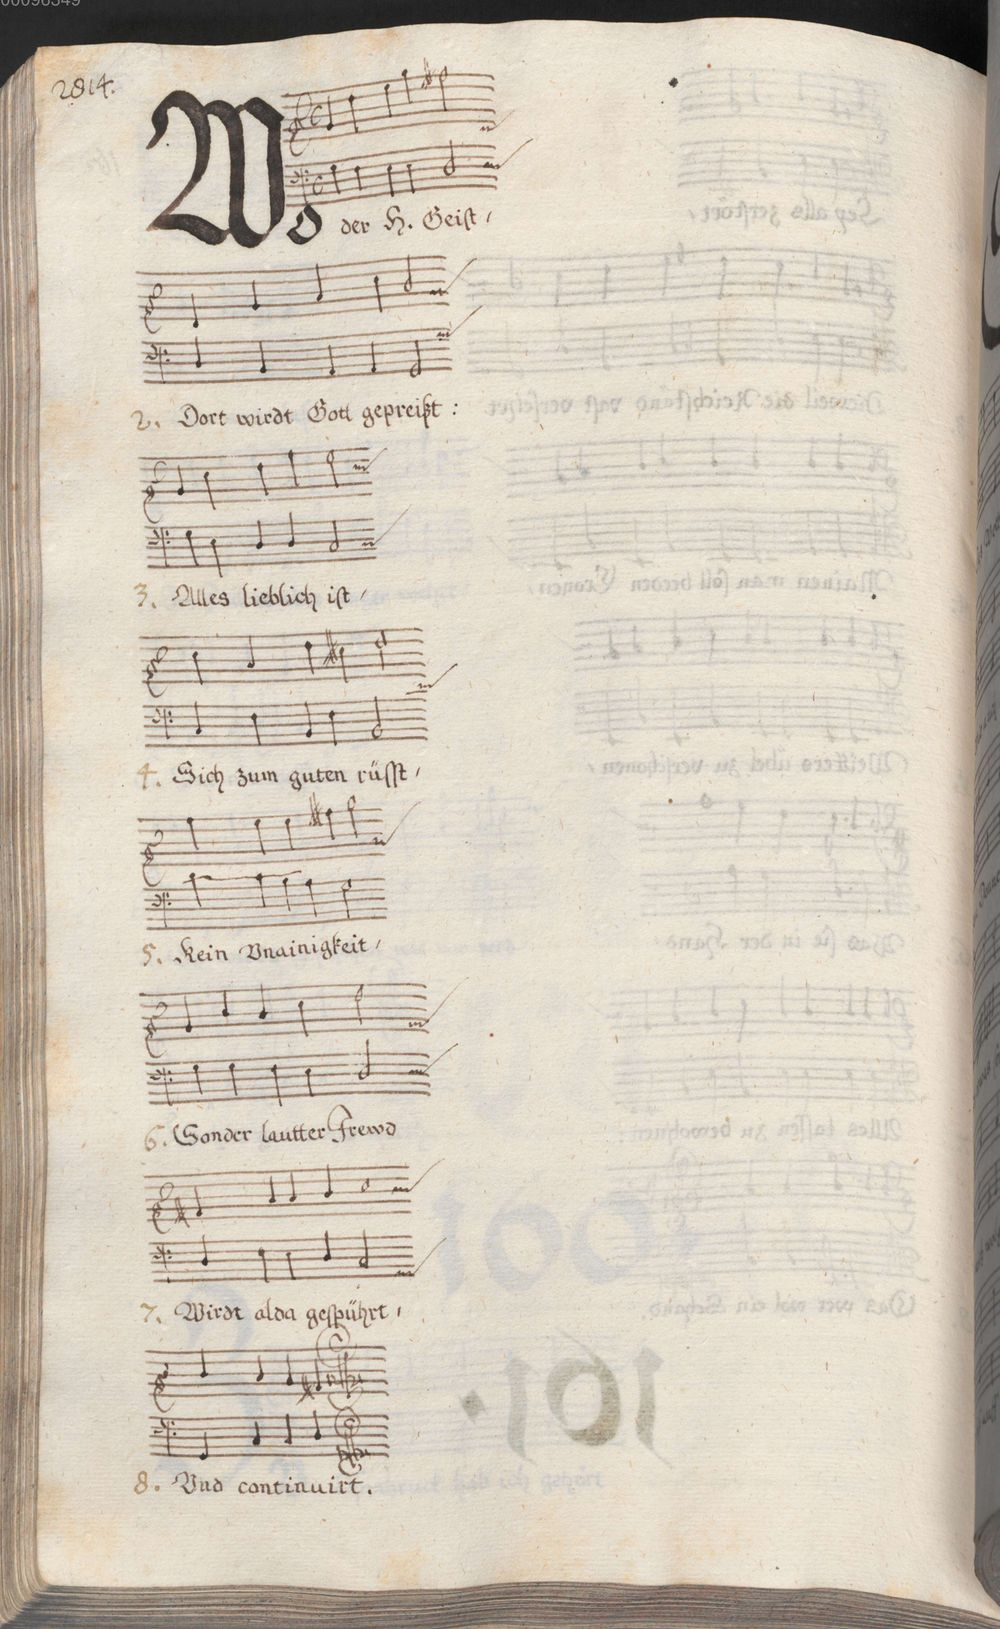 2814.
Wo der H. Geist /
2. Dort wirdt Gott gepreißt :
3. Alles lieblich ist /
4. Sich zum guten rüsst /
5. Kein Vnainigkeit /
6. Sonder lautter Frewd
7. Wirdt alda gespührt /
8. Vnd continuirt.